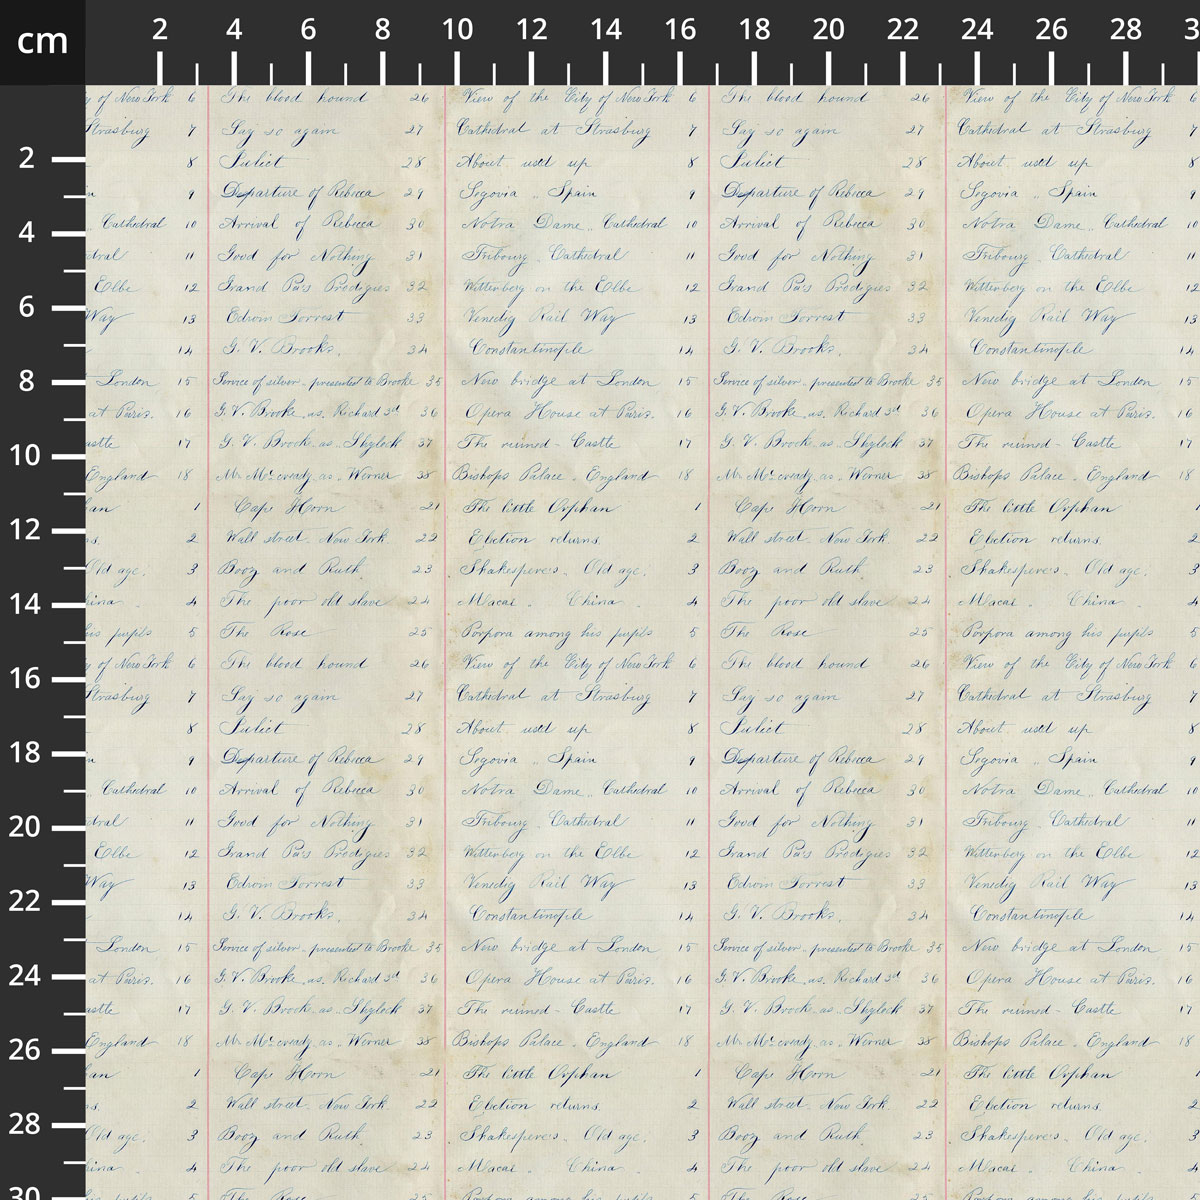 cm 2 4 6 8 10 12 14 16 18 20 22 24 26 28 3
y of New York 6 The blood hound 26 View of the City of New York 6 The blood hound 26 View of the City of New York 6
Strasburg 7 Say so again 27 Cathedral at Strasburg 7 Say so again 27 Cathedral at Strasburg 7
2 8 Juliet 28 About used up 8 Juliet 28 About used up 8
n 9 Departure of Rebecca 29 Segovia .. Spain 9 Departure of Rebecca 29 Segovia .. Spain 9
4 Cathedral 10 Arrival of Rebecca 30 Notra Dame .. Cathedral 10 Arrival of Rebecca 30 Notra Dame .. Cathedral 10
dral 11 Good for Nothing 31 Fribourg . Cathedral 11 Good for Nothing 31 Fribourg . Cathedral 11
Elbe 12 Grand Pa's Prodigies 32 Wittenberg on the Elbe 12 Grand Pa's Prodigies 32 Wittenberg on the Elbe 12
6 Way 13 Edwin Forrest 33 Venedig Rail Way 13 Edwin Forrest 33 Venedig Rail Way 13
14 G. V. Brooks. 34 Constantinople 14 G. V. Brooks. 34 Constantinople 14
8 London 15 Service of silver - presented to Brooke 35 New bridge at London 15 Service of silver - presented to Brooke 35 New bridge at London 15
at Paris. 16 G. V. Brooke as. Richard 3rd 36 Opera House at Paris. 16 G. V. Brooke as. Richard 3rd 36 Opera House at Paris. 16
10 astle 17 G. V. Brook as - Shylock 37 The ruined - Castle 17 G. V. Brook as - Shylock 37 The ruined - Castle 17
England 18 Mr McCready as . Werner 38 Bishops Palace . England 18 Mr McCready as . Werner 38 Bishops Palace . England 18
an 1 Cape Horn 21 The little Orphan 1 Cape Horn 21 The little Orphan 1
12 s. 2 Wall street. New York 22 Election returns. 2 Wall street. New York 22 Election returns. 2
Old age. 3 Booz and Ruth. 23 Shakespere's . Old age. 3 Booz and Ruth. 23 Shakespere's . Old age. 3
14 hina . 4 The poor old slave 24 Macai . China . 4 The poor old slave 24 Macai . China . 4
his pupils 5 The Rose 25 Porpora among his pupils 5 The Rose 25 Porpora among his pupils 5
16 y of New York 6 The blood hound 26 View of the City of New York 6 The blood hound 26 View of the City of New York 6
Strasburg 7 Say so again 27 Cathedral at Strasburg 7 Say so again 27 Cathedral at Strasburg 7
8 Juliet 28 About used up 8 Juliet 28 About used up 8
18 n 9 Departure of Rebecca 29 Segovia .. Spain 9 Departure of Rebecca 29 Segovia .. Spain 9
Cathedral 10 Arrival of Rebecca 30 Notra Dame .. Cathedral 10 Arrival of Rebecca 30 Notra Dame .. Cathedral 10
20 dral 11 Good for Nothing 31 Fribourg . Cathedral 11 Good for Nothing 31 Fribourg . Cathedral 11
Elbe 12 Grand Pa's Prodigies 32 Wittenberg on the Elbe 12 Grand Pa's Prodigies 32 Wittenberg on the Elbe 12
Way 13 Edwin Forrest 33 Venedig Rail Way 13 Edwin Forrest 33 Venedig Rail Way 13
22 14 G. V. Brooks. 34 Constantinople 14 G. V. Brooks. 34 Constantinople 14
London 15 Service of silver - presented to Brooke 35 New bridge at London 15 Service of silver - presented to Brooke 35 New bridge at London 15
24 at Paris. 16 G. V. Brooke as. Richard 3rd 36 Opera House at Paris. 16 G. V. Brooke as. Richard 3rd 36 Opera House at Paris. 16
astle 17 G. V. Brook as - Shylock 37 The ruined - Castle 17 G. V. Brook as - Shylock 37 The ruined - Castle 17
26 England 18 Mr McCready as . Werner 38 Bishops Palace . England 18 Mr McCready as . Werner 38 Bishops Palace . England 18
an 1 Cape Horn 21 The little Orphan 1 Cape Horn 21 The little Orphan 1
28 s. 2 Wall street. New York 22 Election returns. 2 Wall street. New York 22 Election returns. 2
Old age. 3 Booz and Ruth. 23 Shakespere's . Old age. 3 Booz and Ruth. 23 Shakespere's . Old age. 3
hina . 4 The poor old slave 24 Macai . China . 4 The poor old slave 24 Macai . China . 4
30 his pupils 5 The Rose 25 Porpora among his pupils 5 The Rose 25 Porpora among his pupils 5